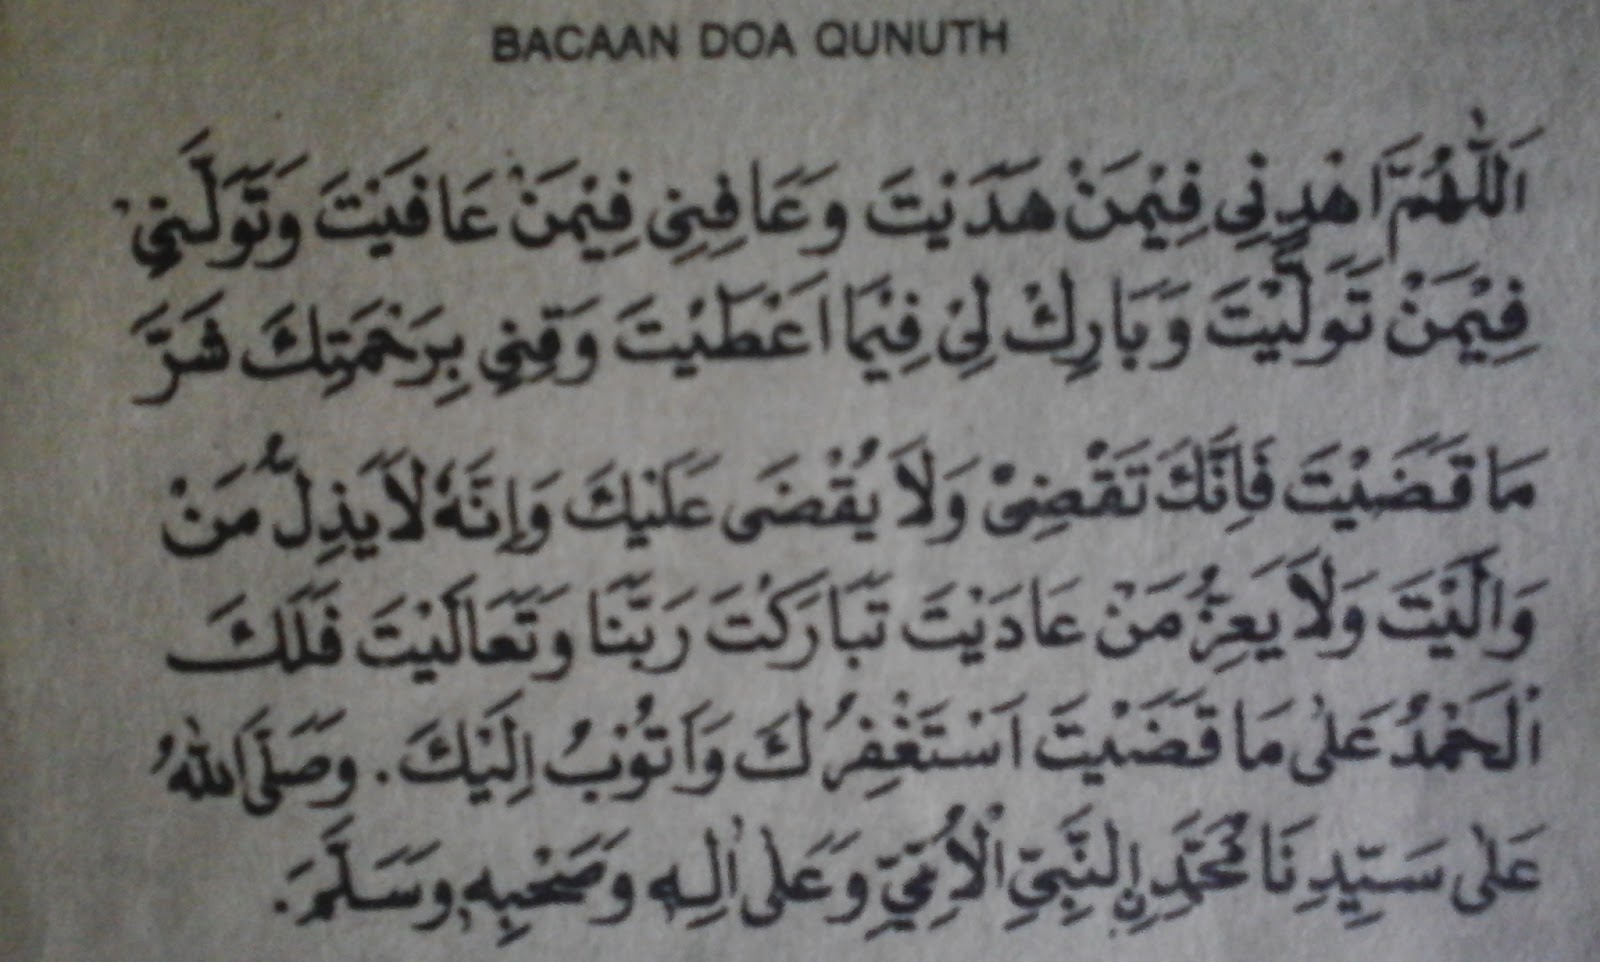 BACAAN DOA QUNUTH
اَللّٰهُمَّ اهْدِنِي فِيْمَنْ هَدَيْتَ وَعَافِنِي فِيْمَنْ عَافَيْتَ وَتَوَلَّنِيْ
فِيْمَنْ تَوَلَّيْتَ وَبَارِكْ لِيْ فِيْمَا اَعْطَيْتَ وَقِنِي بِرَحْمَتِكَ شَرَّ
مَا قَضَيْتَ فَاِنَّكَ تَقْضِىْ وَلَا يُقْضَى عَلَيْكَ وَإِنَّهُ لَا يَذِلُّ مَنْ
وَالَيْتَ وَلَا يَعِزُّ مَنْ عَادَيْتَ تَبَارَكْتَ رَبَّنَا وَتَعَالَيْتَ فَلَكَ
الْحَمْدُ عَلٰى مَا قَضَيْتَ اَسْتَغْفِرُكَ وَاَتُوْبُ اِلَيْكَ. وَصَلَّى اللهُ
عَلٰى سَيِّدِنَا مُحَمَّدٍ النَّبِيِّ الْاُمِّيِّ وَعَلٰى اٰلِهِ وَصَحْبِهِ وَسَلَّمَ.